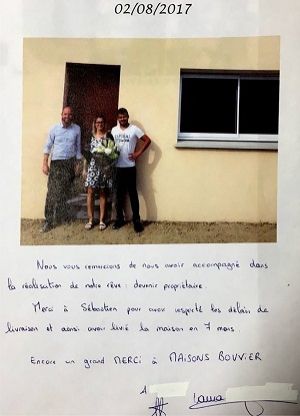 02/08/2017
Nous vous remercions de nous avoir accompagné dans
la réalisation de notre rêve : devenir propriétaire.
Merci à Sébastien pour avoir respecté les délais de
livraison et ainsi avoir livré la maison en 7 mois.
Encore un grand MERCI à MAISONS BOUVIER
A
Laura